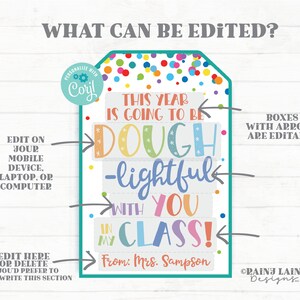 WHAT CAN BE EDITED?
PERSONALIZE WITH
Corjl
THIS YEAR
IS GOING TO BE
DOUGH
-lightful
WITH YOU
IN MY CLASS!
From: Mrs. Sampson
EDIT ON
YOUR
MOBILE
DEVICE,
LAPTOP, OR
COMPUTER
EDIT HERE
OR DELETE
OU'D PREFER TO
WRITE THIS SECTION
BOXES
WITH ARRO
ARE EDITA
©RAINJ LAIN
Designs